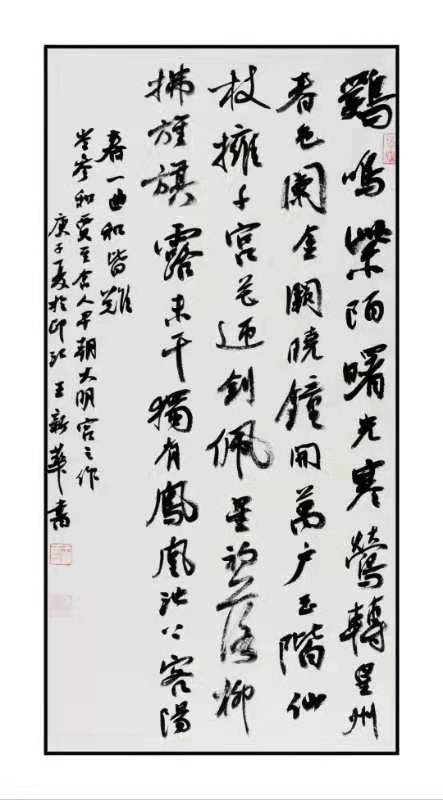 鷄鳴紫陌曙光寒鶯轉皇州
春色闌金闕曉鐘開萬户玉階仙
杖擁千官花迎劍佩星初落柳
拂旌旗露未干獨有鳳凰池上客陽
春一曲和皆難
岑參和賈至舍人早朝大明宫之作
庚子夏於印江王新華書